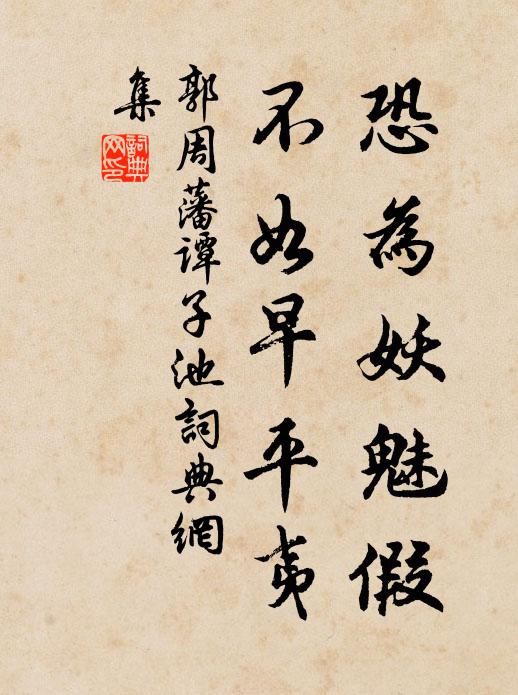 恐為妖魅假
不如早平夷
郭周藩譚子池詞典網
集
詞典
网印